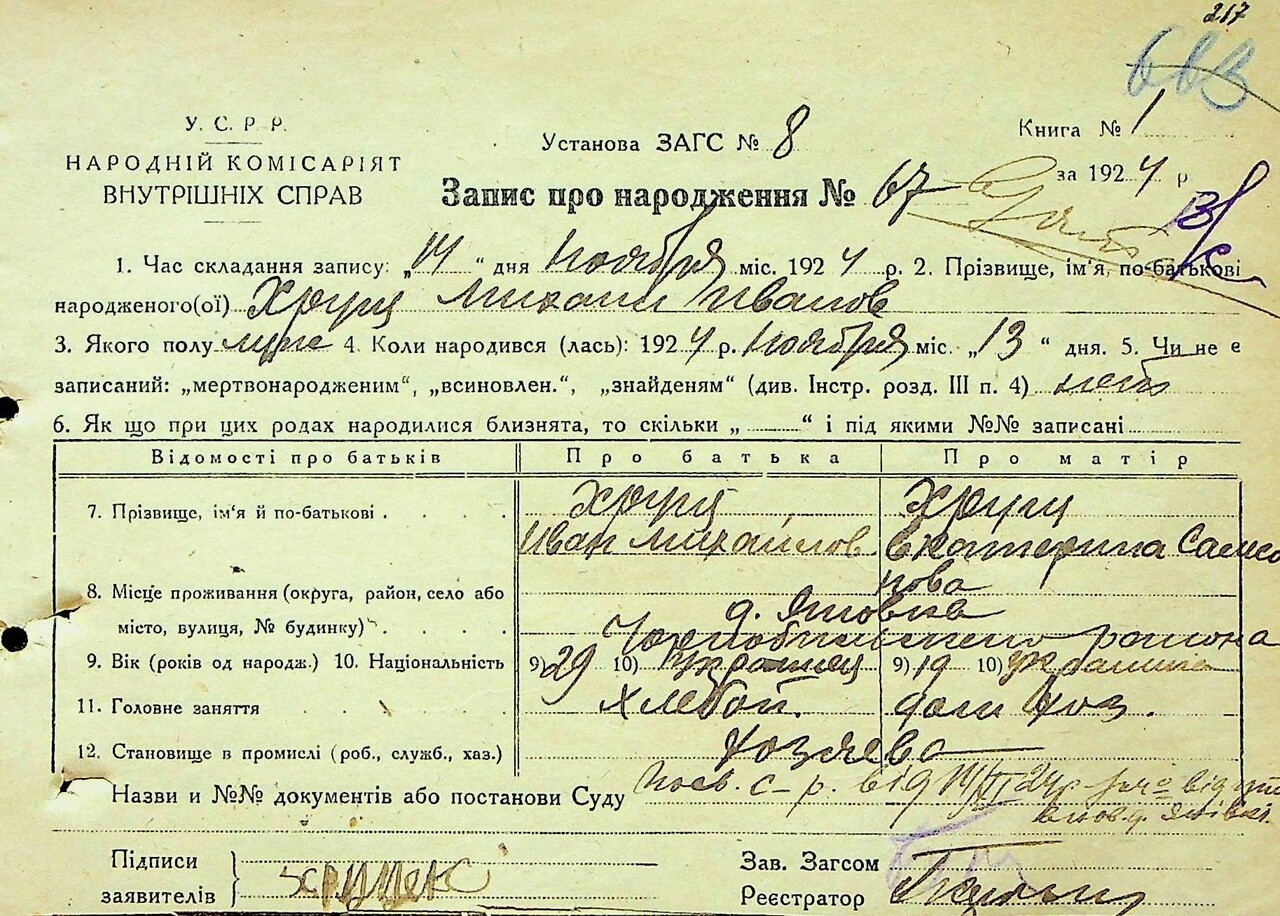 217
У. С. Р. Р.
НАРОДНІЙ КОМІСАРІЯТ
ВНУТРІШНІХ СПРАВ
Установа ЗАГС № 8
Книга № 1
за 1924 р
Запис про народження № 67
1. Час складання запису: „14“ дня Ноября міс. 1924 р. 2. Прізвище, ім‘я, по-батькові
народженого(ої) Хрущ Михаил Иванов
3. Якого полу муже 4. Коли народився (лась): 1924 р. Ноября міс. „13“ дня. 5. Чи не є
записаний: „мертвонародженим“, „всиновлен.“, „знайденям“ (див. Інстр. розд. III п. 4) нет
6. Як що при цих родах народилися близнята, то скільки „ “ і під якими №№ записані
Відомості про батьків Про батька Про матір
7. Прізвище, ім‘я й по-батькові Хрущ Хрущ
Иван Михайлов. Екатерина Самсо
нова
8. Місце проживання (округа, район, село або д. Яновка
місто, вулиця, № будинку) района
9. Вік (років од народж.) 10. Національність 9) 29 10) Украинец 9) 19 10) Украинка
11. Головне заняття Хлебоп. дом хоз.
12. Становище в промислі (роб., служб., хаз.) Хозяева
Назви и №№ документів або постанови Суду Посв. с-р. від
Підписи
заявителів
Зав. Загсом
Реєстратор